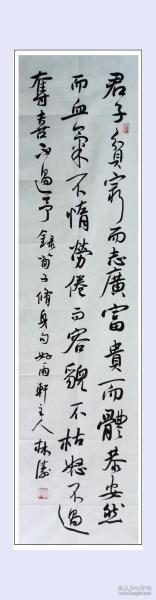 君子貧窮而志廣富貴而體恭安然
而血氣不惰勞倦而容貌不枯怒不過
奪喜不過予 錄荀子修身句 好雨軒主人林濤